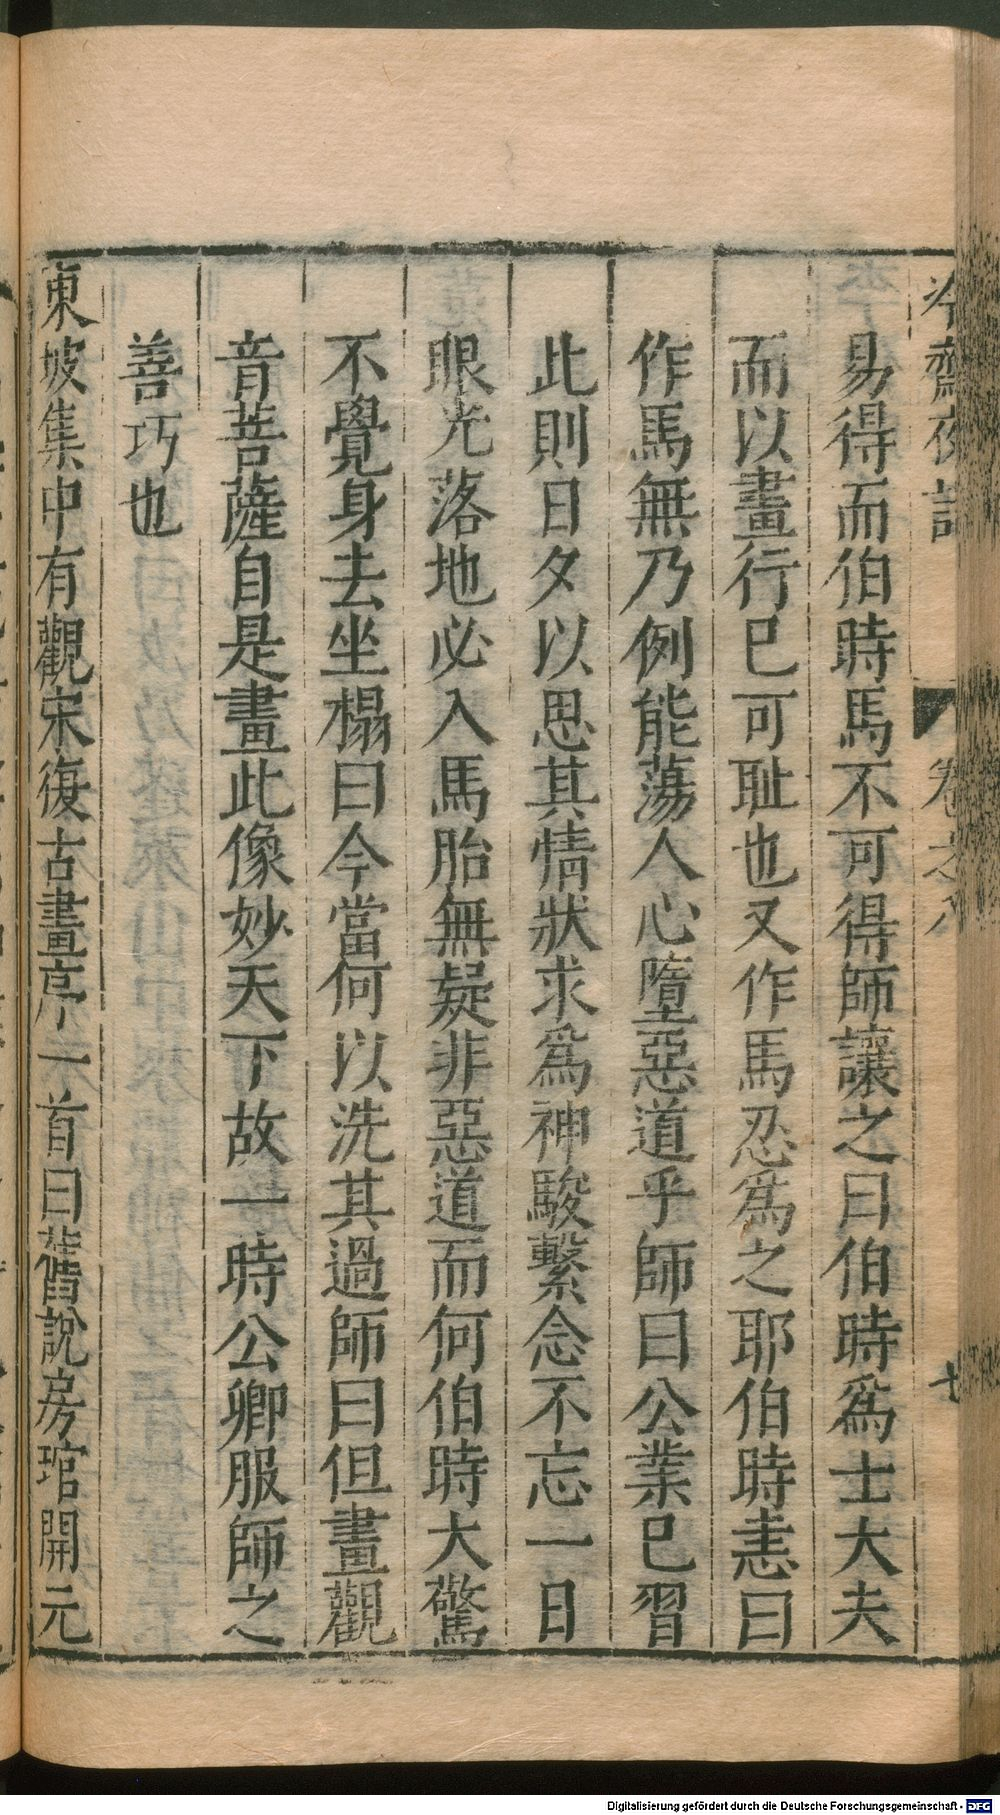 冷齋夜話 卷之八 七
易得而伯時馬不可得師讓之曰伯時爲士大夫
而以畫行已可恥也又作馬忍爲之耶伯時恚曰
作馬無乃例能蕩人心墮惡道乎師曰公業已習
此則日夕以思其情狀求爲神駿繫念不忘一日
眼光落地必入馬胎無疑非惡道而何伯時大驚
不覺身去坐榻曰今當何以洗其過師曰但畫觀
音菩薩自是畫此像妙天下故一時公卿服師之
善巧也
東坡集中有觀宋復古畫序一首曰舊說房琯開元
Digitalisierung gefördert durch die Deutsche Forschungsgemeinschaft - DFG